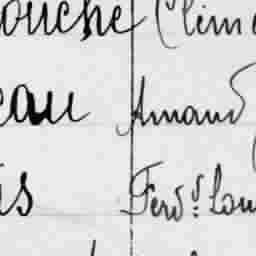 ouche Clém
eau Amand
is Ferd.d Lou